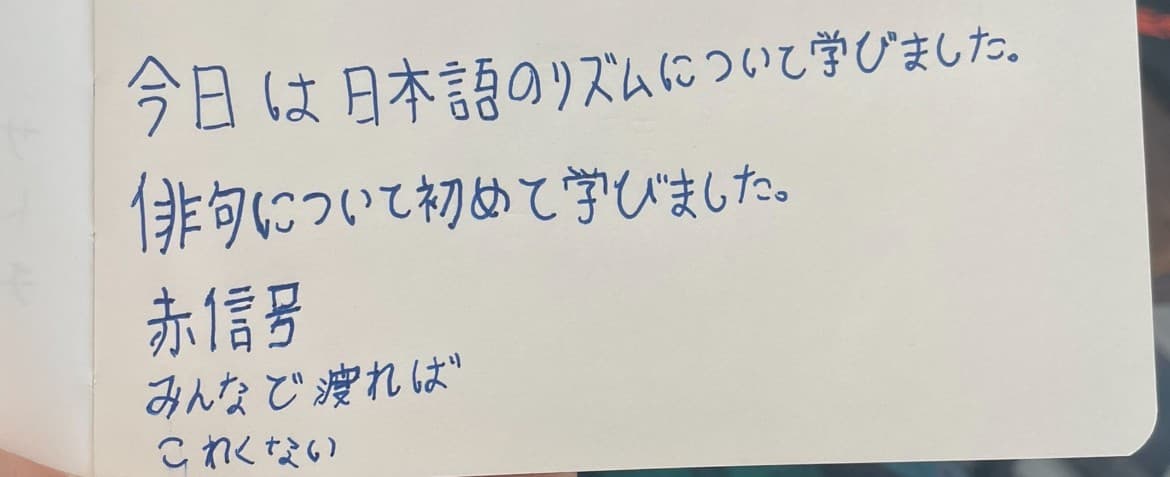 今日は日本語のリズムについて学びました。
俳句について初めて学びました。
赤信号
みんなで渡れば
こわくない